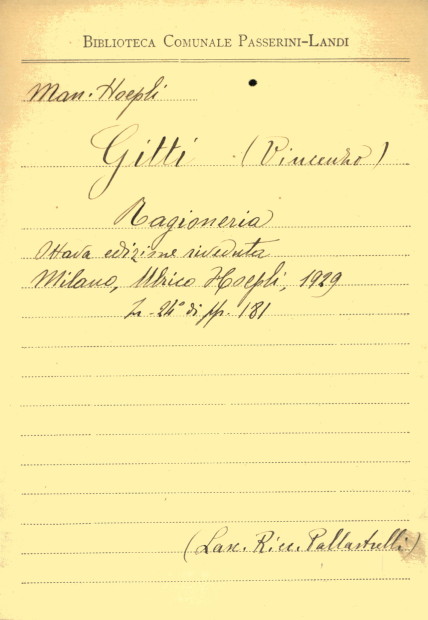 BIBLIOTECA COMUNALE PASSERINI-LANDI
Man. Hoepli
Gitti (Vincenzo)
Ragioneria
Ottava edizione riveduta
Milano, Ulrico Hoepli, 1929
In-24° di pp. 181
(Lasc. Ricc. Pallastrelli)